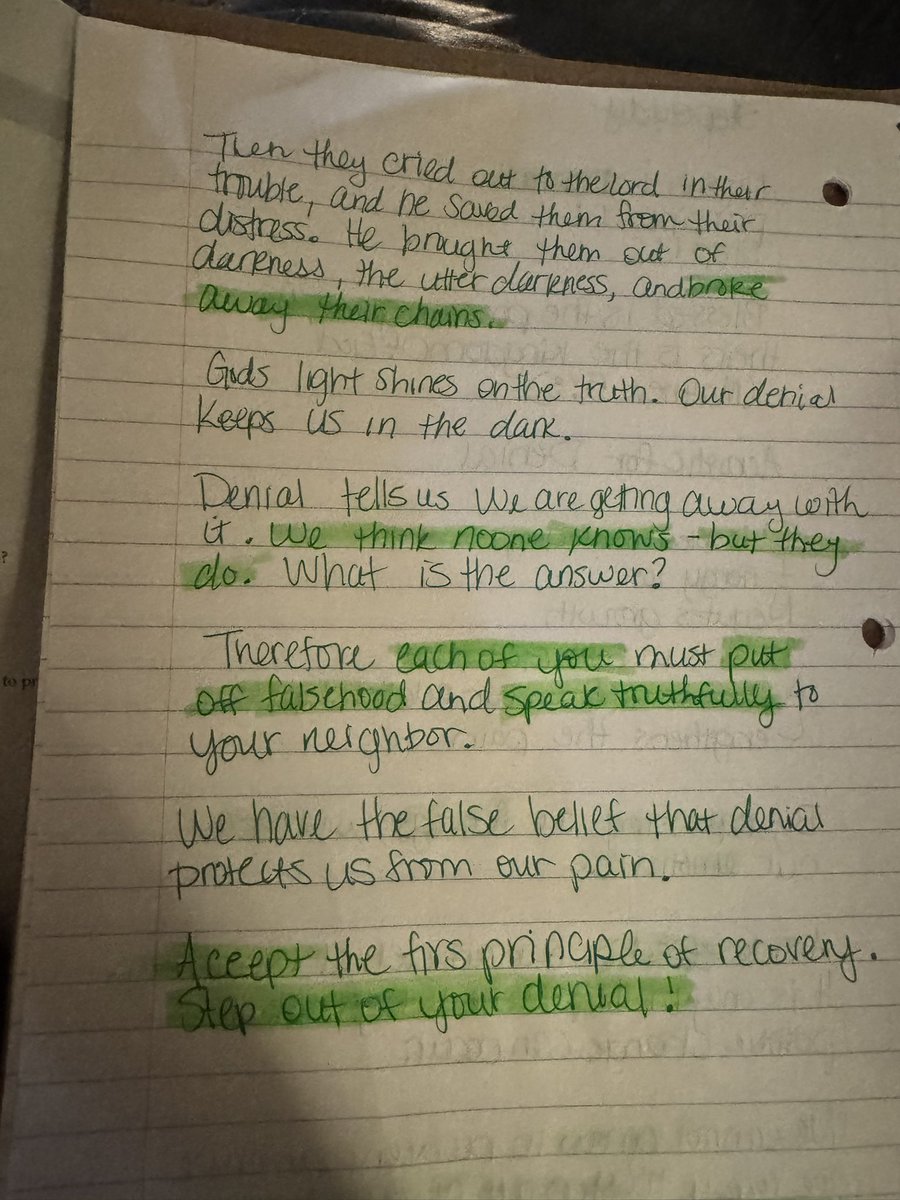 Then they cried out to the lord in their
trouble, and he saved them from their
distress. He brought them out of
darkness, the utter darkness, and broke
away their chains.
Gods light shines on the truth. Our denial
keeps us in the dark.
Denial tells us we are getting away with
it. We think noone knows - but they
do. What is the answer?
Therefore each of you must put
off falsehood and speak truthfully to
your neighbor.
We have the false belief that denial
protects us from our pain.
Accept the firs principle of recovery.
Step out of your denial!
?
to pr